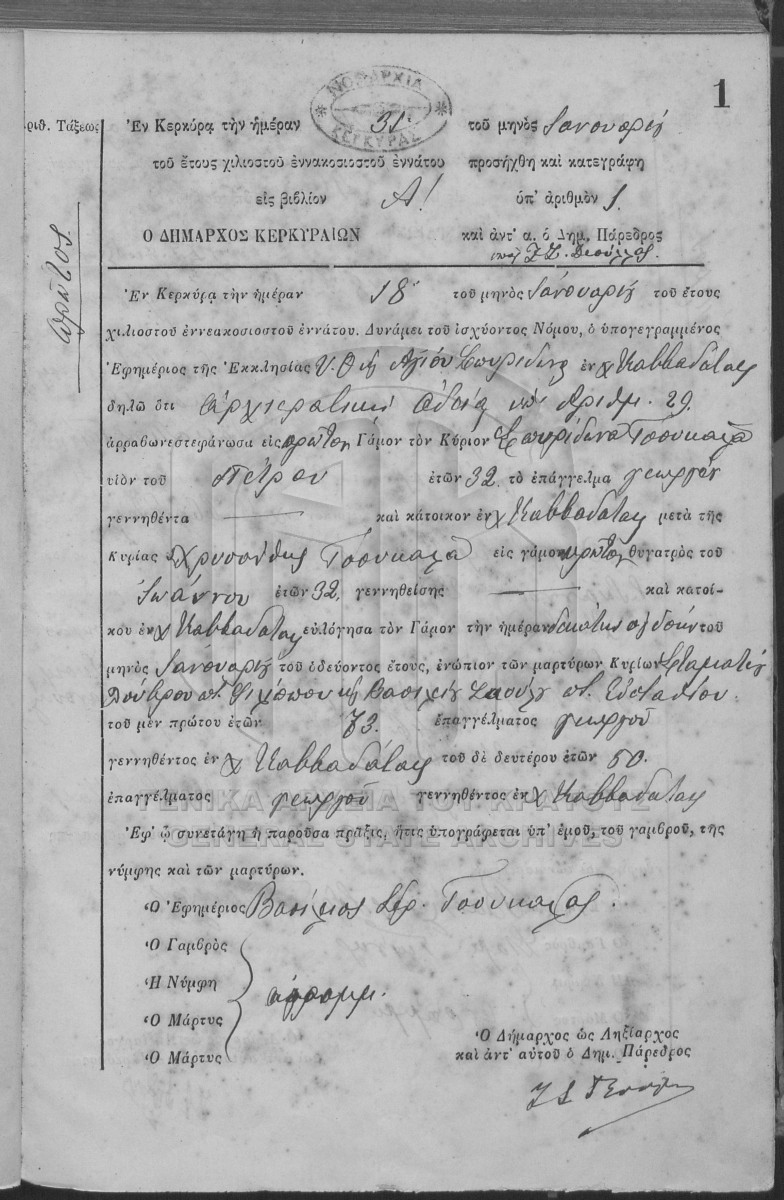 1
ΝΟΜΑΡΧΙΑ
ΚΕΡΚΥΡΑΣ
ριθ. Τάξεως
πρῶτος
Ἐν Κερκύρᾳ τὴν ἡμέραν 31 τοῦ μηνὸς Ἰανουαρίου
τοῦ ἔτους χιλιοστοῦ ἐννακοσιοστοῦ ἐννάτου προσήχθη καὶ κατεγράφη
εἰς βιβλίον Α! ὑπ' ἀριθμὸν 1
Ο ΔΗΜΑΡΧΟΣ ΚΕΡΚΥΡΑΙΩΝ καὶ ἀντ' α. ὁ Δημ. Πάρεδρος
Ἐν Κερκύρᾳ τὴν ἡμέραν 18 τοῦ μηνὸς Ἰανουαρίου τοῦ ἔτους
χιλιοστοῦ ἐννεακοσιοστοῦ ἐννάτου. Δυνάμει τοῦ ἰσχύοντος Νόμου, ὁ ὑπογεγραμμένος
Ἐφημέριος τῆς Ἐκκλησίας Υ. Θ. Ἁγίου Σπυρίδωνος ἐν χ Καββαδάταις
δηλῶ ὅτι ἀρχιερατικῇ ἀδείᾳ ὑπ' ἀριθμ. 29.
ἀρραβωνεστεφάνωσα εἰς πρῶτον Γάμον τὸν Κύριον Σπυρίδωνα Τσουκαλᾶ
υἱὸν τοῦ Πέτρου ἐτῶν 32 τὸ ἐπάγγελμα γεωργὸν
γεννηθέντα — καὶ κάτοικον ἐν χ Καββαδάταις μετὰ τῆς
Κυρίας Χρυσάνθης Τσουκαλᾶ εἰς γάμον πρῶτον θυγατρὸς τοῦ
Ἰωάννου ἐτῶν 32, γεννηθείσης — καὶ κατοί-
κου ἐν χ Καββαδάταις εὐλόγησα τὸν Γάμον τὴν ἡμέραν δεκάτην ὀγδόην τοῦ
μηνὸς Ἰανουαρίου τοῦ ὁδεύοντος ἔτους, ἐνώπιον τῶν μαρτύρων Κυρίων Σταματίου
Φιλίππου Βασιλείου π. Εὐσταθίου.
τοῦ μὲν πρώτου ἐτῶν 73. ἐπαγγέλματος γεωργοῦ
γεννηθέντος ἐν χ Καββαδάταις τοῦ δὲ δευτέρου ἐτῶν 60.
ἐπαγγέλματος γεωργοῦ γεννηθέντος ἐν χ Καββαδάταις
ΓΕΝΙΚΑ ΑΡΧΕΙΑ ΤΟΥ ΚΡΑΤΟΥΣ
Ἐφ' ᾧ συνετάγη ἡ παροῦσα πρᾶξις, ἥτις ὑπογράφεται ὑπ' ἐμοῦ, τοῦ γαμβροῦ, τῆς
GENERAL STATE ARCHIVES
νύμφης καὶ τῶν μαρτύρων.
Ὁ Ἐφημέριος Βασίλειος Τσουκαλᾶς.
Ὁ Γαμβρὸς
Ἡ Νύμφη
ἀγράμμ.
Ὁ Μάρτυς
Ὁ Μάρτυς
Ὁ Δήμαρχος ὡς Ληξίαρχος
καὶ ἀντ' αὐτοῦ ὁ Δημ. Πάρεδρος